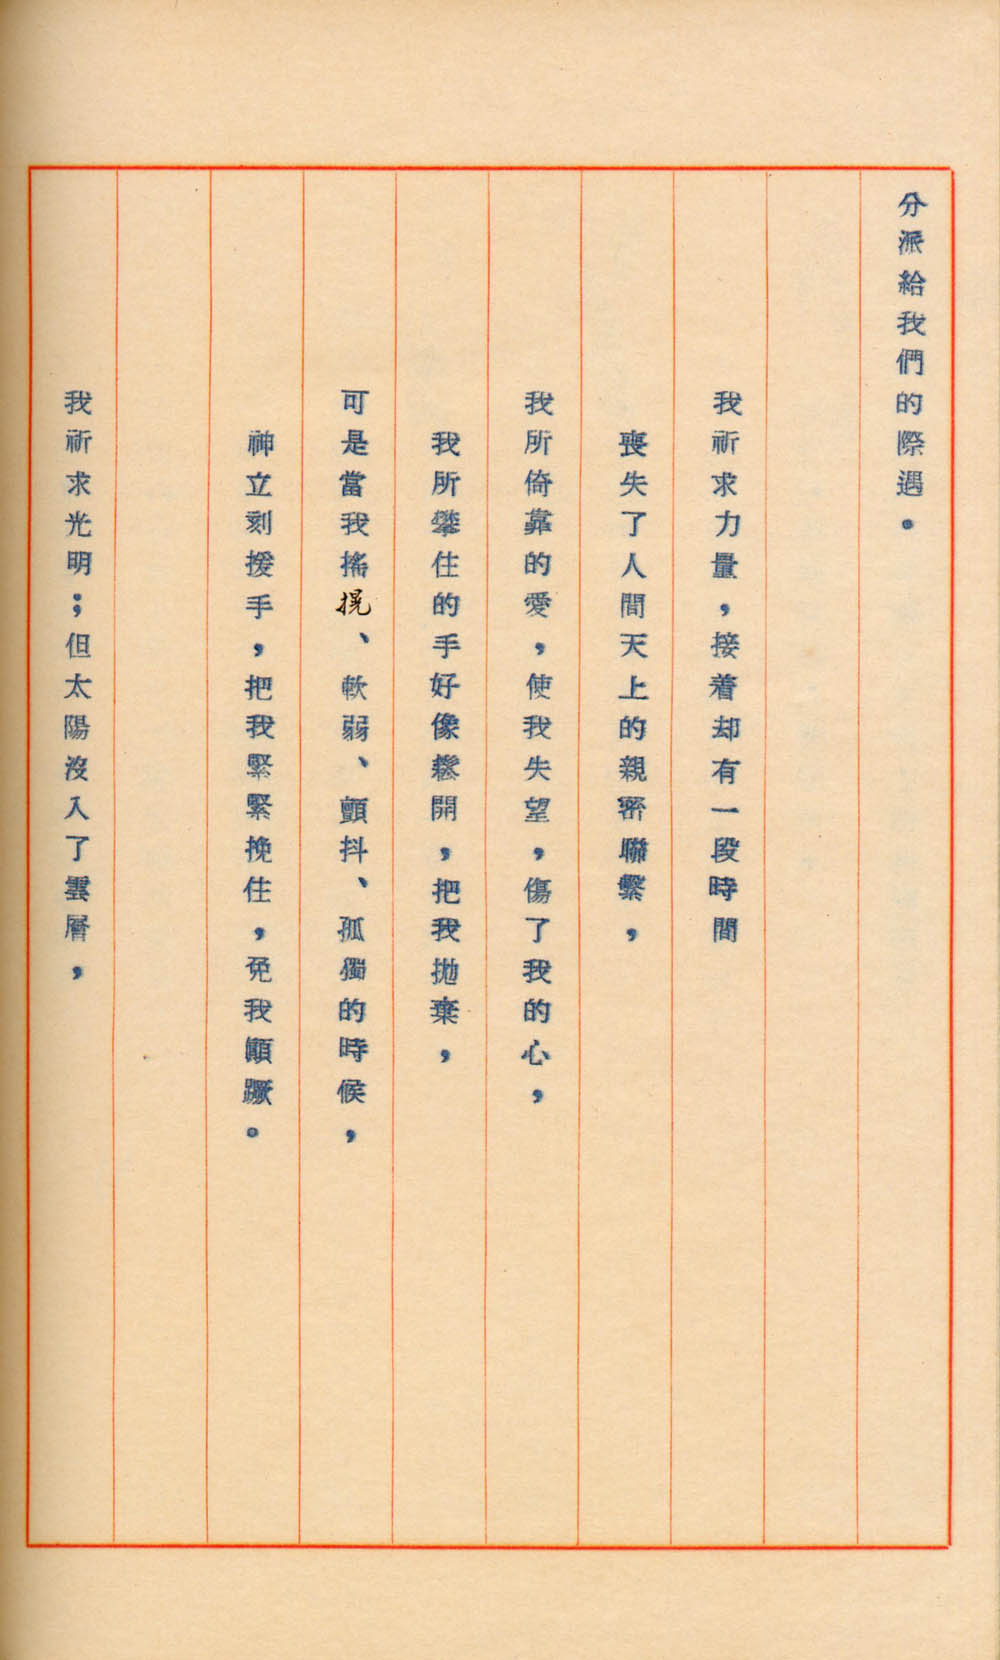 分派給我們的際遇。
我祈求力量，接着却有一段時間
喪失了人間天上的親密聯繫，
我所倚靠的愛，使我失望，傷了我的心，
我所攀住的手好像鬆開，把我拋棄，
可是當我搖摬、軟弱、顫抖、孤獨的時候，
神立刻援手，把我緊緊挽住，免我顚蹶。
我祈求光明；但太陽沒入了雲層，